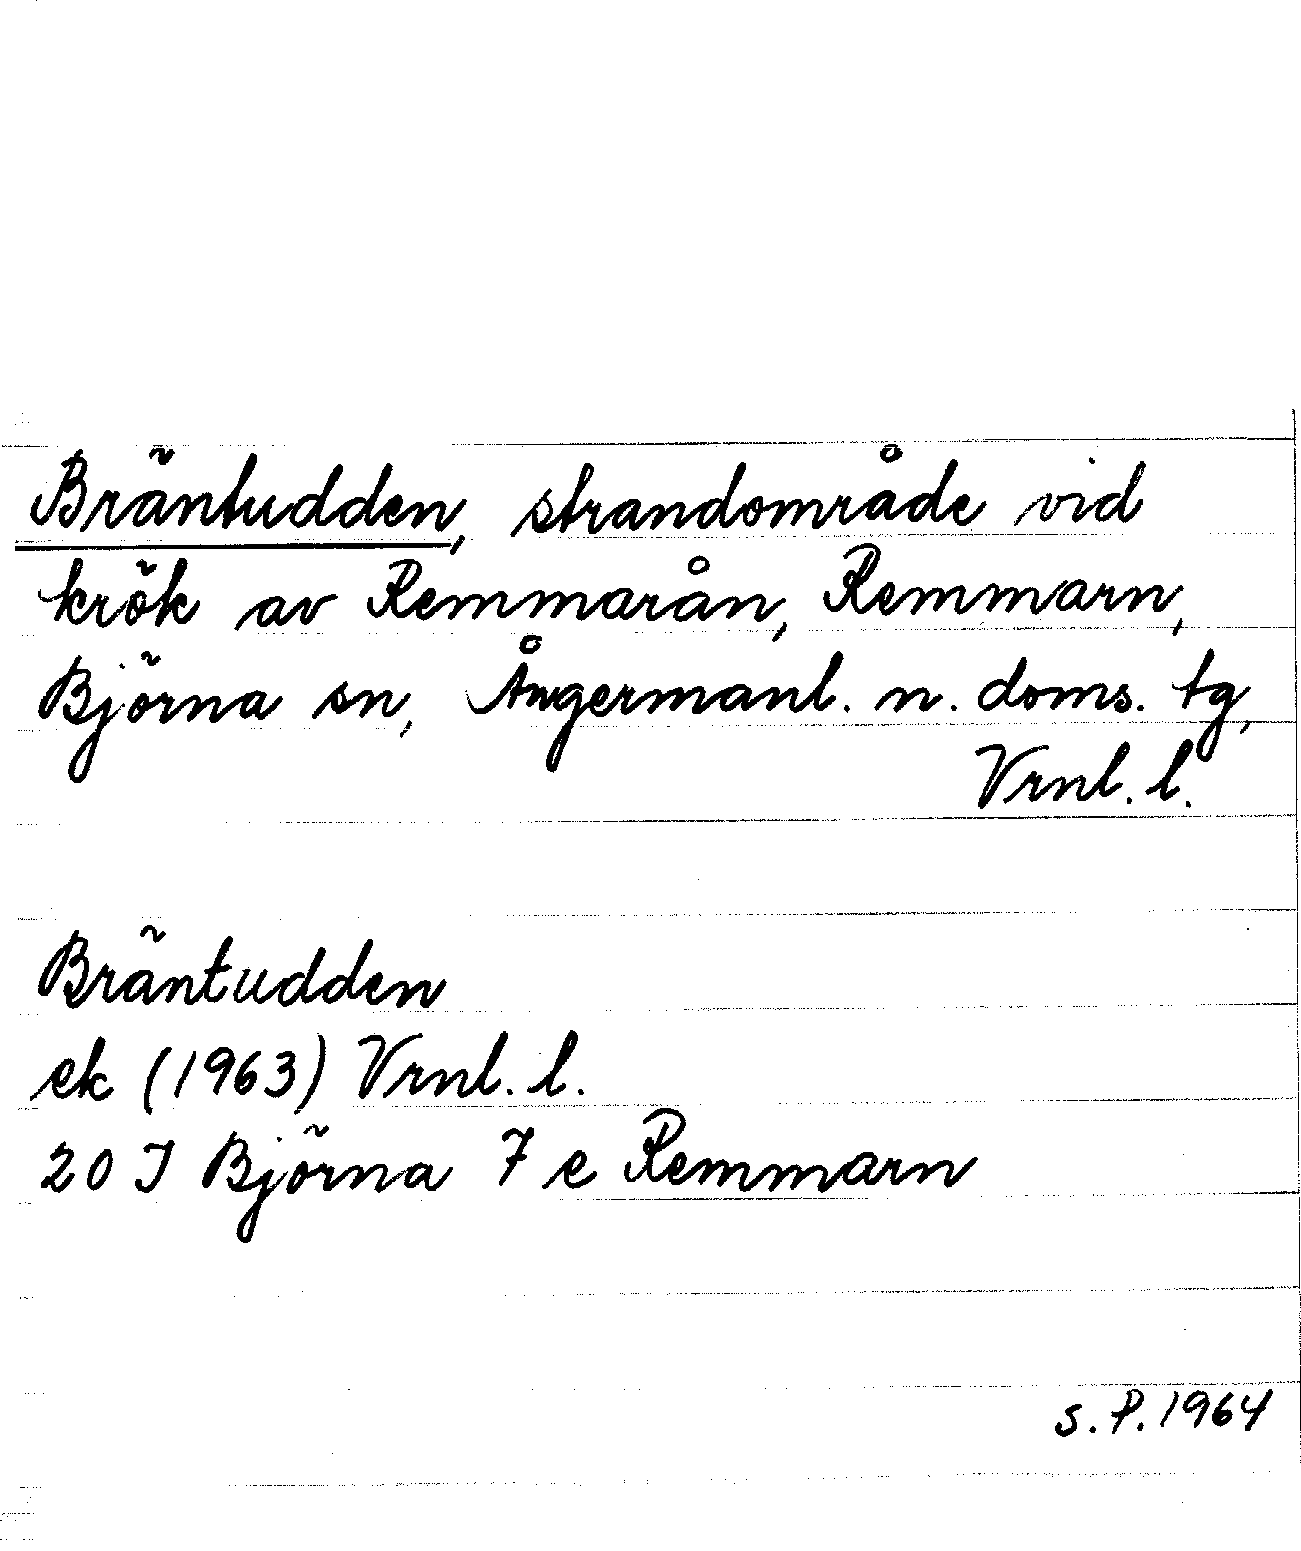 Bräntudden, strandområde vid
krök av Remmarån, Remmarn,
Björna sn, Ångermanl. n. doms. tg,
Vrnl. l.
Bräntudden
ek (1963) Vrnl. l.
20 J Björna 7 e Remmarn
S. P. 1964